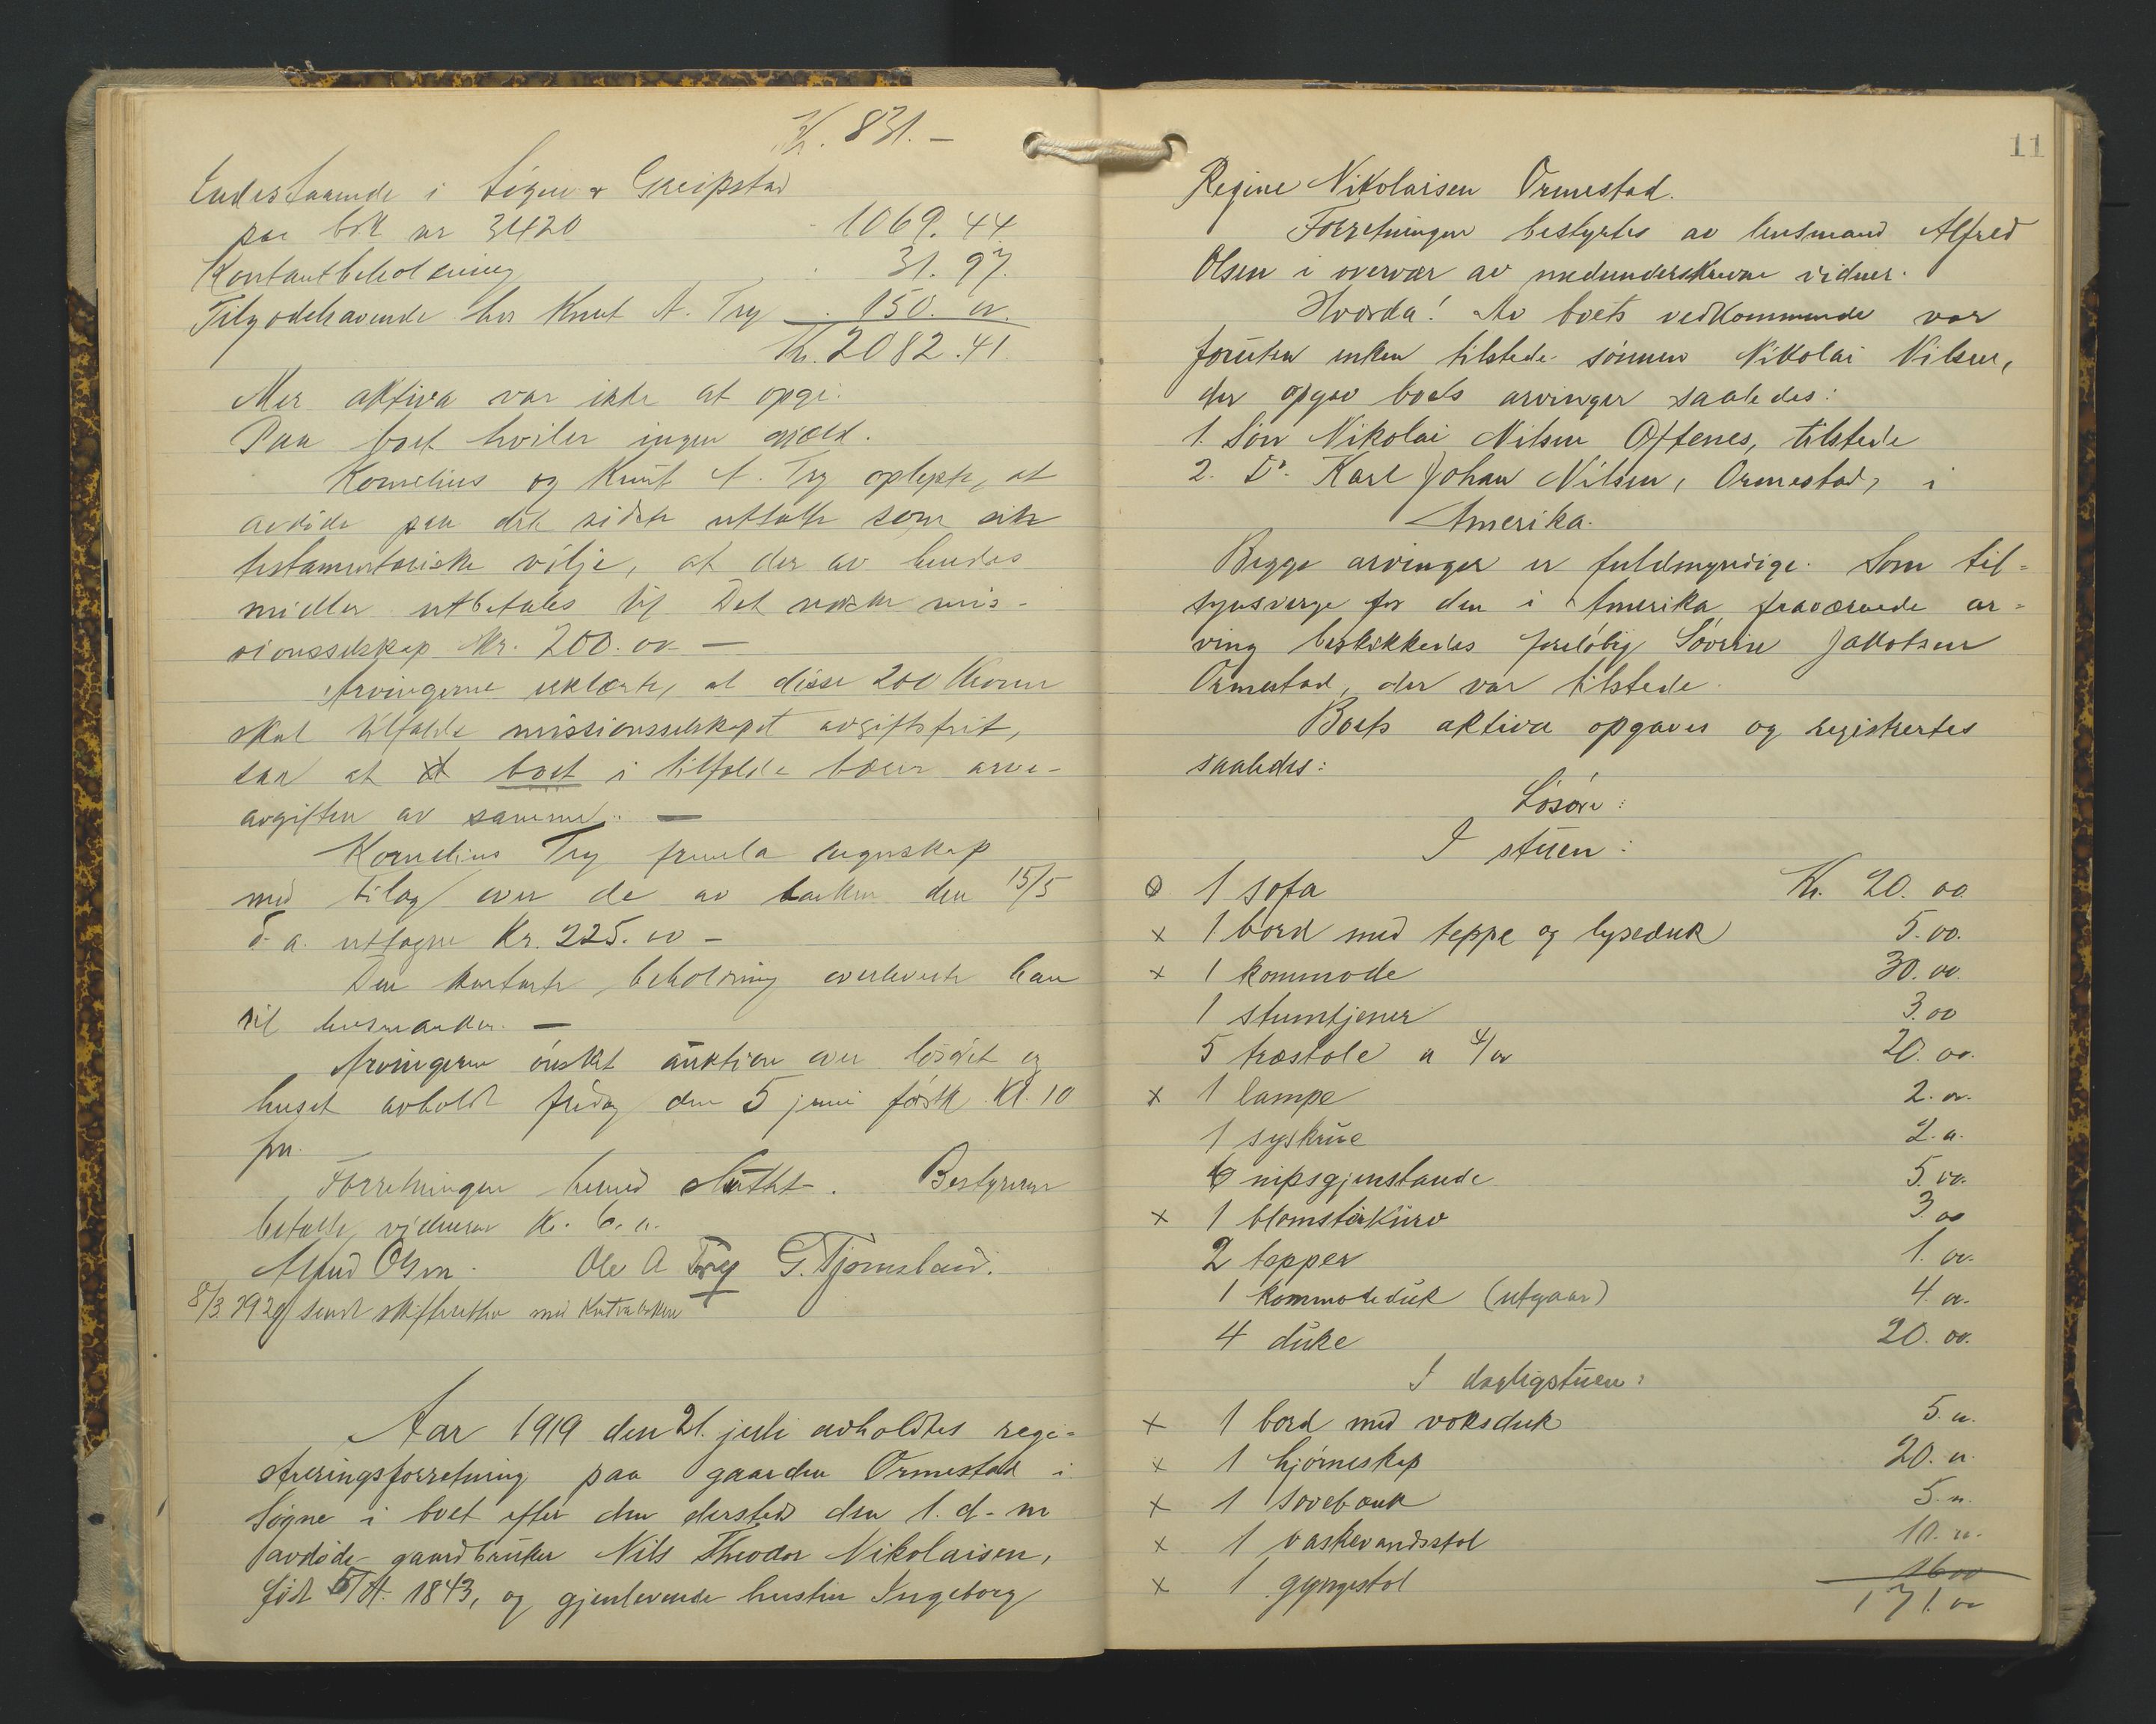 Kr. 831.-
Indestaaende i Søgne & Greipstad
paa bok nr 3420 1069.44
Kontantbeholdning 31.97.
Tilgodehavende hos Knut A. Try 150. oo.
Kr. 2082.41.
Mer aktiva var ikke at opgi.
Paa boet hviler ingen gjæld.
Kornelius og Knut A. Try oplyste, at
avdøde paa det sidste uttalte som sin
testamentariske vilje, at der av hendes
midler utbetales til Det norske mis-
sionsselskap Kr. 200.oo -
Arvingerne erklærte, at disse 200 Kroner
skal tilfalde missionsselskapet avgiftsfrit,
saa at boet i tilfælde bærer arve-
avgiften av samme. -
Kornelius Try fremla regnskap
med bilag over de av banken den 15/5
d. a. uttagne Kr. 225.oo -
Den kontante beholdning overleverte han
til lensmanden. -
Arvingerne ønsket auktion over løsøret og
huset avholdt fredag den 5 juni førstk. Kl. 10
fm.
Forretningen hermed sluttet. Bestyreren
betalte vidnerne Kr. 6.oo.
Alfred Olsen. Ole A Try G. Tjomsland.
8/3 1920 sendt skifteretten med
Aar 1919 den 21. juli avholdtes regi-
streringsforretning paa gaarden Ormestad i
Søgne i boet efter den dersteds den 1. d. m
avdøde gaardbruker Nils Theodor Nikolaisen,
født 1843, og gjenlevende hustru Ingeborg
11
Regine Nikolaisen Ormestad.
Forretningen bestyrtes av lensmand Alfred
Olsen i overvær av medunderskrevne vidner.
Hvorda! Av boets vedkommende var
foruten enken tilstede sønnen Nikolai Nilsen,
der opgav boets arvinger saaledes:
1. Søn Nikolai Nilsen Øftenes, tilstede
2. Do. Karl Johan Nilsen, Ormestad, i
Amerika.
Begge arvinger er fuldmyndige. Som til-
synsverge for den i Amerika fraværende ar-
ving beskikkedes foreløbig Søvrin Jakobsen
Ormestad, der var tilstede.
Boets aktiva opgaves og registrertes
saaledes:
Løsøre:
I stuen:
o 1 sofa Kr. 20.oo.
x 1 bord med teppe og lyseduk 5.oo.
x 1 kommode 30.oo.
1 stumtjener 3.oo
5 træstole a 4/oo 20.oo.
x 1 lampe 2.oo.
1 syskrue 2.oo.
6 nipsgjenstande 5.oo.
x 1 blomsterkurv 3.oo
2 tepper 1.oo.
1 kommodeduk (utgaar) 4.oo.
4 duke 20.oo.
I dagligstuen:
x 1 bord med voksduk 5.oo.
x 1 hjørneskap 20.oo.
x 1 sovebænk 5.oo.
x 1 vaskevandsstol 10.oo.
x 1 gyngestol 16oo
171.oo